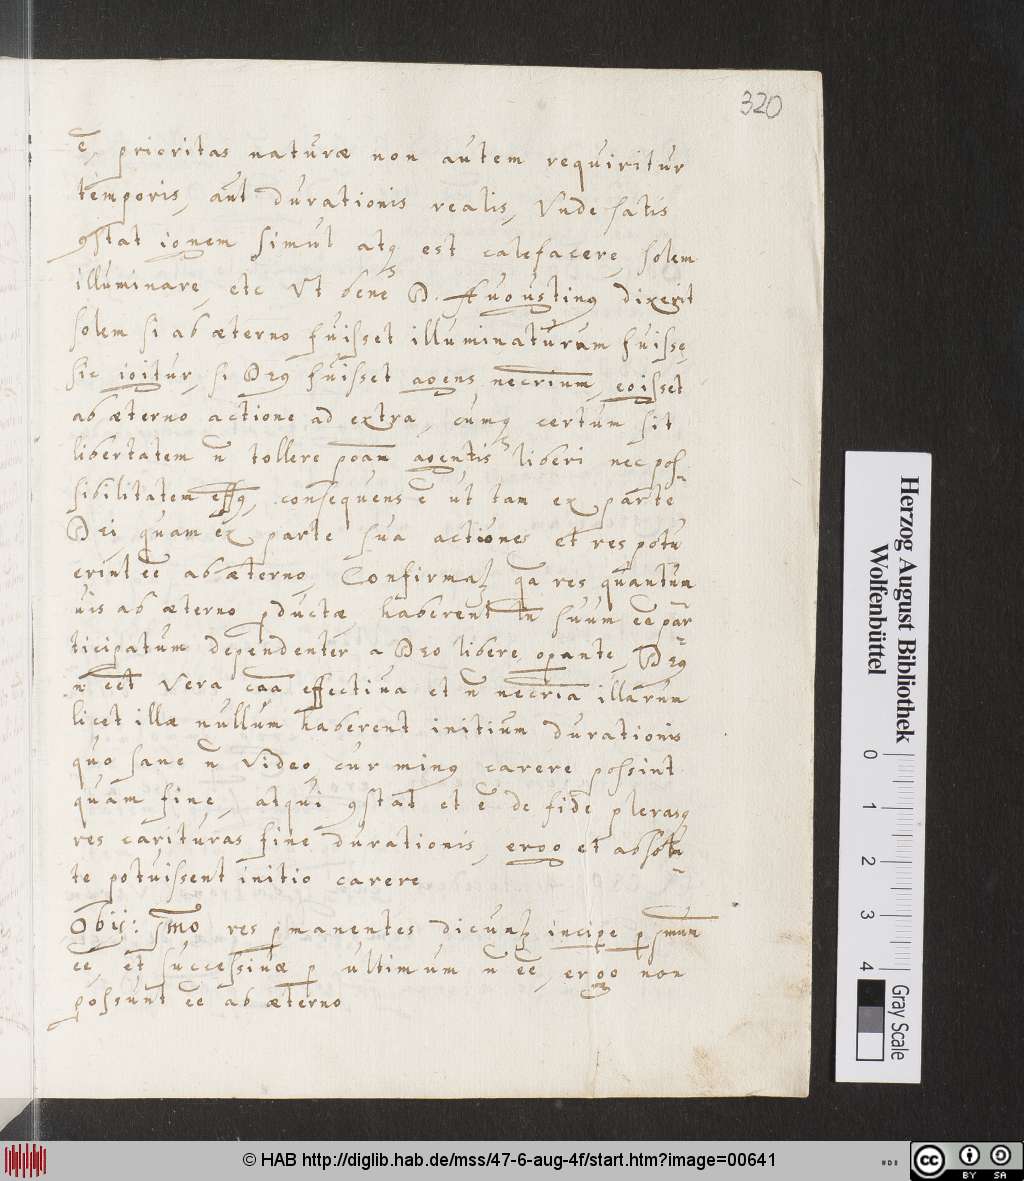 320
ē, prioritas naturæ non autem requiritur
temporis, aut durationis realis, Vnde satis
ꝯstat ignem simul atqȝ est calefacere, solem
illuminare, etc Vt bene D. Augustinꝰ dixerit
solem si ab æterno fuisset illuminaturum fuisse,
sic igitur, si Deꝰ fuisset agens necrium, egisset
ab æterno actione ad extra, cumqȝ certum sit
libertatem n̄ tollere poam agentis liberi nec pos-
sibilitatem effꝰ, consequens ē ut tam ex parte
Dei, quam ex parte sua actiones et res potu
erint ēē ab æterno, Confirmaꝶ qa res quantum
uis ab æterno ꝓductæ haberent tn suum ēē par-
ticipatum dependenter a Deo libere operante, Deꝰ
n̄ eet vera caa effectiua et n̄ necria illarum
licet illæ nullum haberent initium durationis
quo sane n̄ video, cur minꝰ carere possint
quam fine, atqui ꝯstat et ē de fide plerasqȝ
res carituras fine durationis, ergo et absolu-
te potuissent initio carere
Obij: smo res ꝑmanentes dicunꝶ incipe ꝑ smum
ēē, et successiuæ ꝑ ultimum n̄ ēē, ergo non
possunt ēē ab æterno
Herzog August Bibliothek
Wolfenbüttel
0 1 2 3 4
Gray Scale
© HAB http://diglib.hab.de/mss/47-6-aug-4f/start.htm?image=00641
cc BY SA